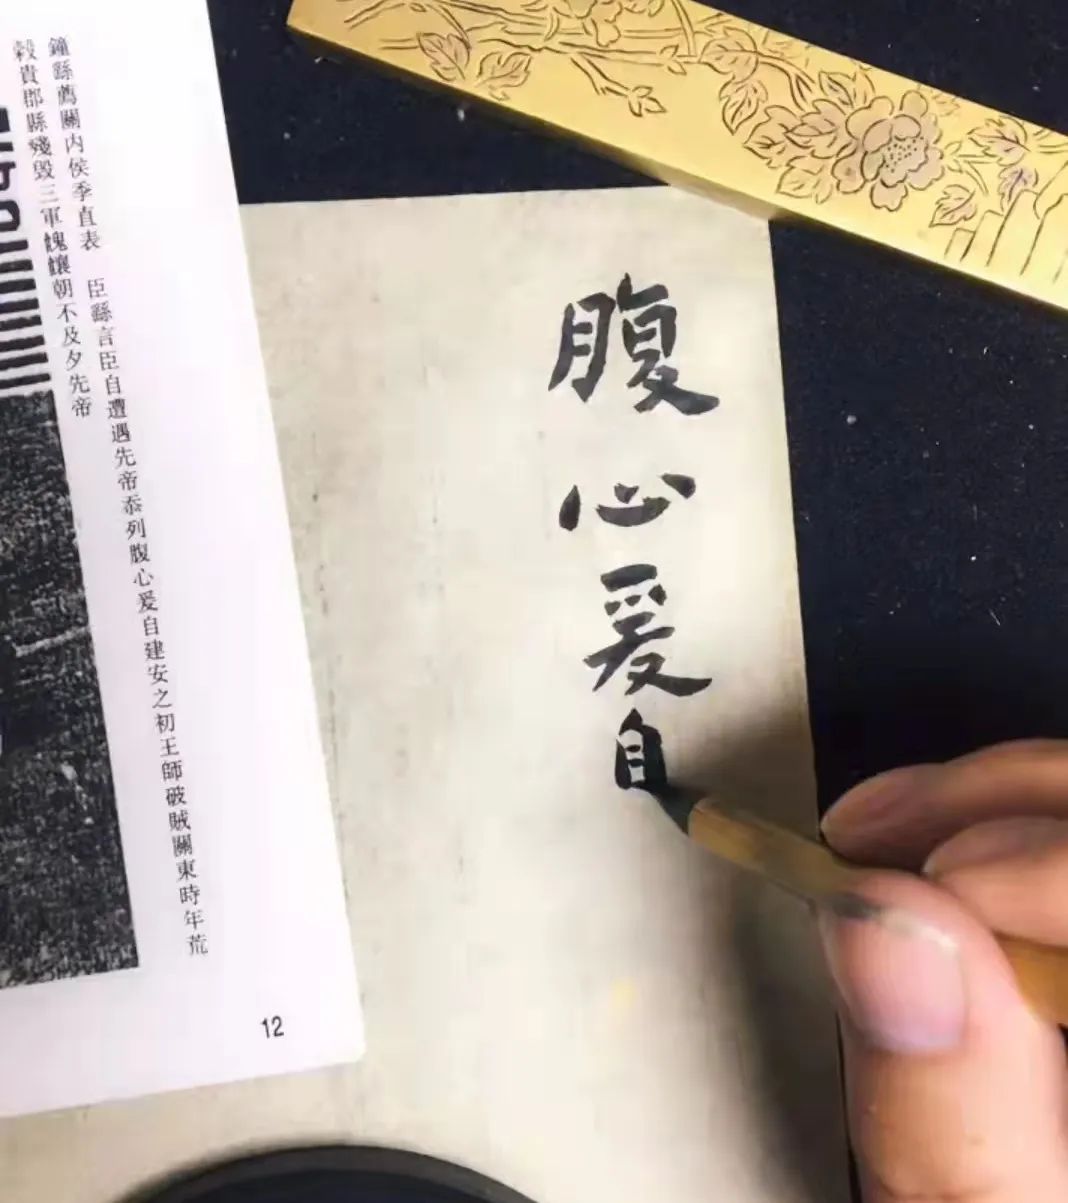 鐘繇薦關内侯季直表　臣繇言臣自遭遇先帝忝列腹心爰自建安之初王師破賊關東時年荒
穀貴郡縣殘毀三軍餽饟朝不及夕先帝
12
腹心爰自